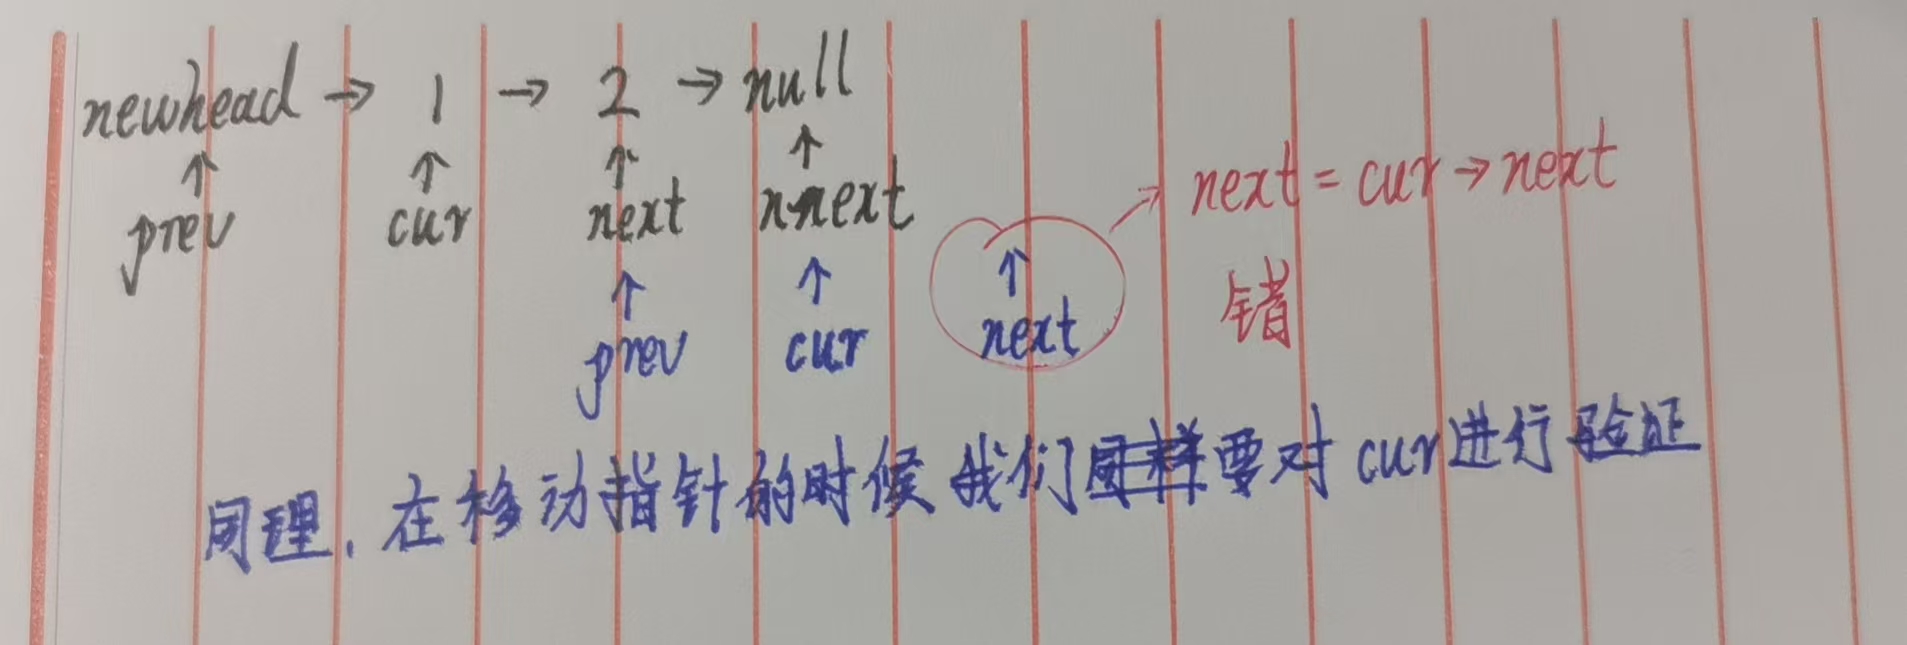 newhead → 1 → 2 → null
↑ ↑ ↑ ↑
prev cur next nnext
next = cur → next
错
↑ ↑ ↑
prev cur next
同理，在移动指针的时候我们同样要对cur进行验证